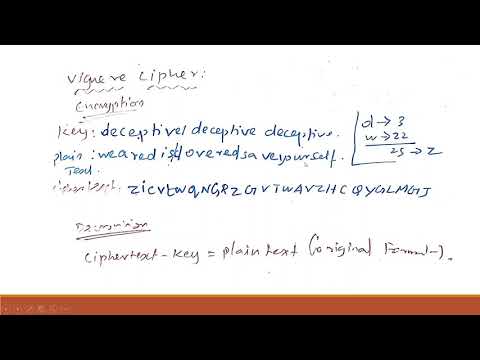 Vignere Cipher:
Encryption
Key: deceptive/deceptive deceptive.
plain: wearedis/overedsaveyourself.
Text
d → 3
w → 22
25 → Z
ZICVTWQNGRZGVTWAVZHCQYGLMGJ
ciphertext - key = plain text (original Format).